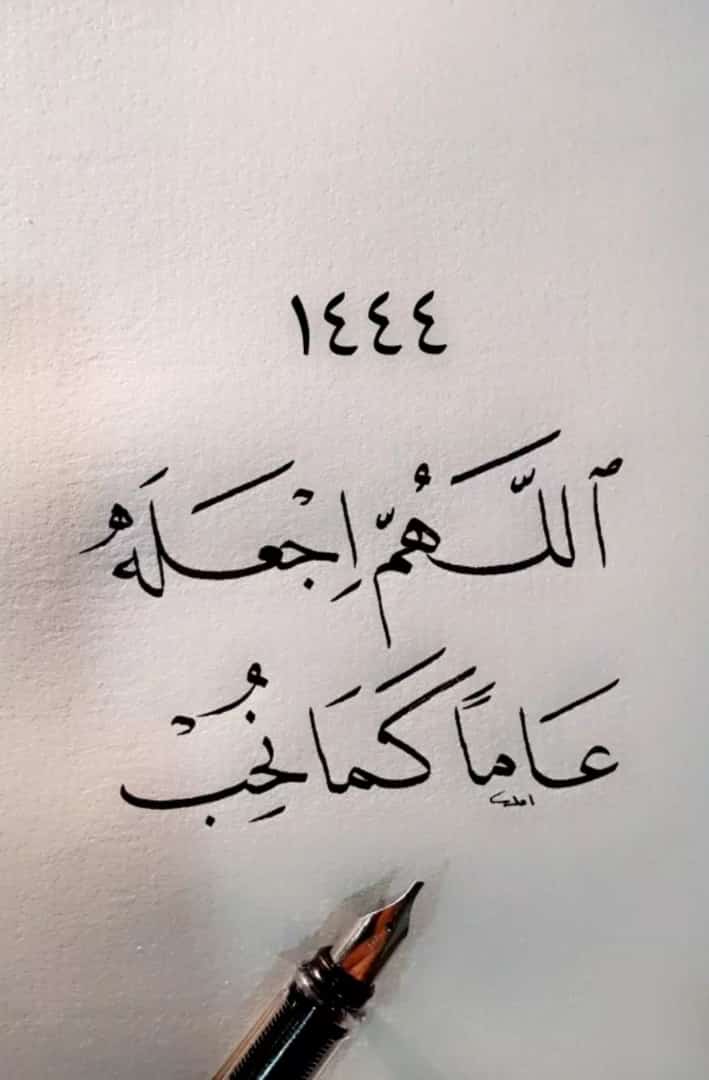 ١٤٤٤
ٱللَّهُمَّ اِجْعَلَهُ
عَامًا كَمَا نُحِبْ